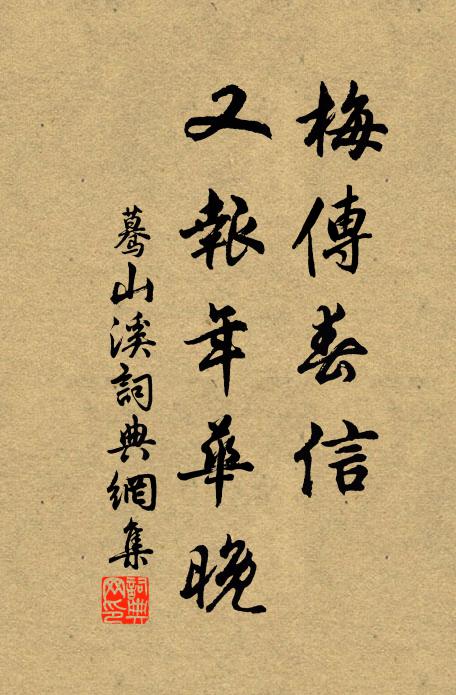 梅傳春信
又報年華晚
驀山溪詞典網集
詞典網印